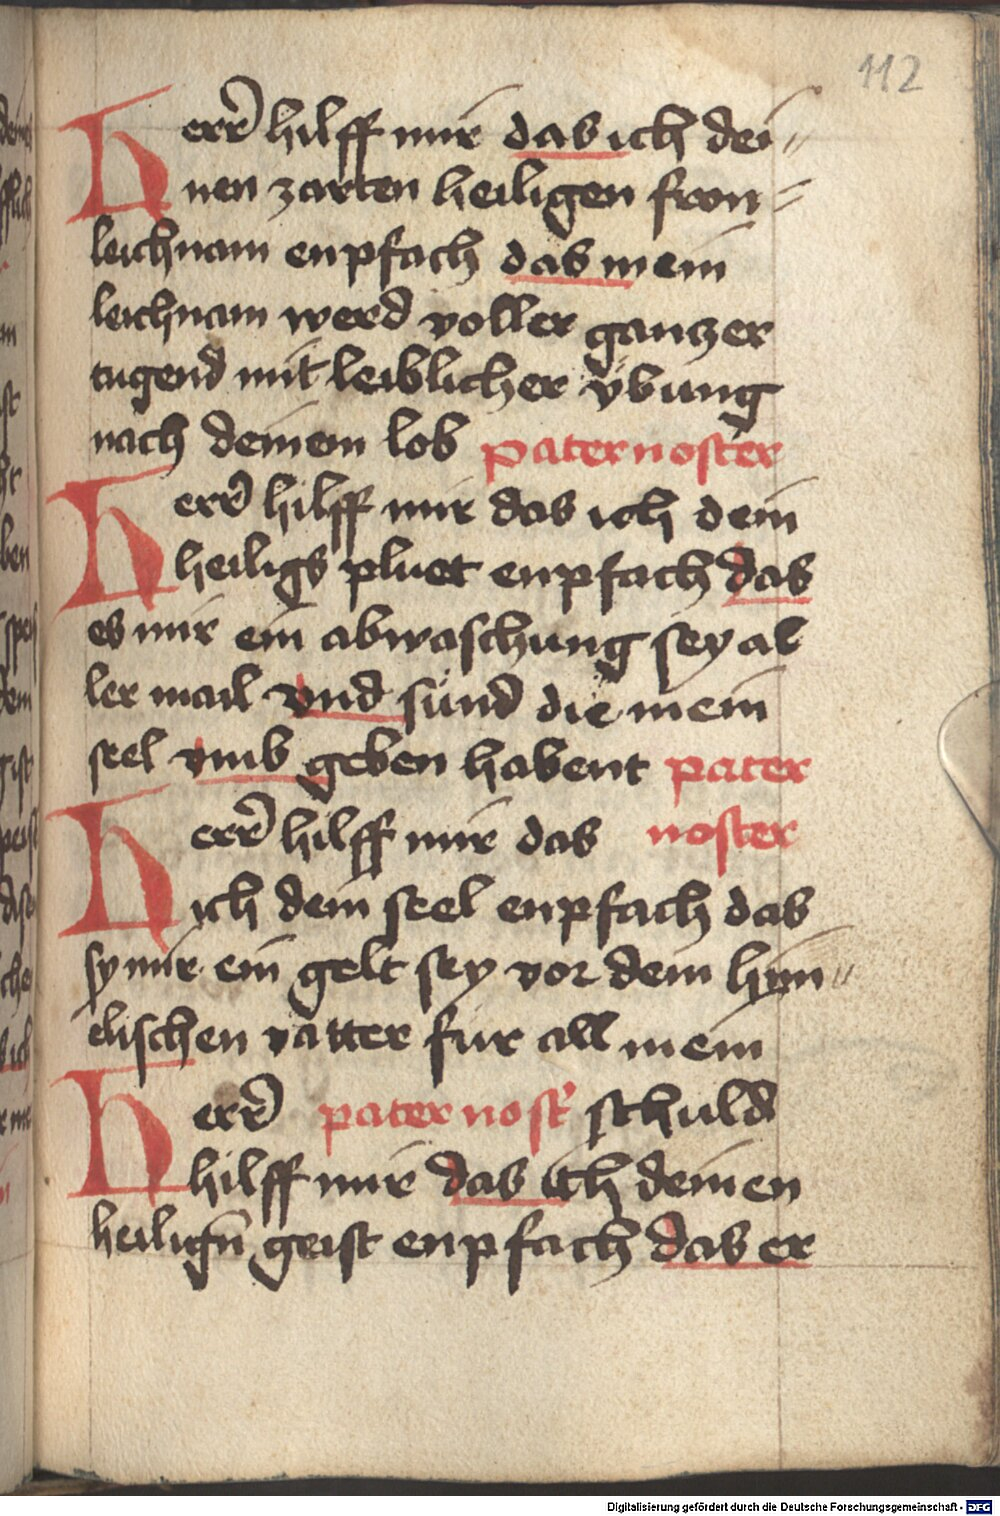 112
Herr̃ hilff mir das ich dei=
nen zarten heiligen fron=
leichnam enpfach das mein
leichnam werd voller gantzer
tugend mit leiblicher v̈bung
nach deinem lob pater noster
Herr̃ hilff mir das ich dein
heiligs pluet enpfach das
es mir ein abwaschung sey al
ler mail vnd sünd die mein
seel vmb geben habent pater
Herr̃ hilff mir das noster
ich dein seel enpfach das
sy mir ein gelt sey vor dem him=
elischen vatter fur all mein
Herr̃ pater nost᷑ schuld
hilff mir das ich deinen
heilign̄ geist enpfach das er
Digitalisierung gefördert durch die Deutsche Forschungsgemeinschaft - DFG